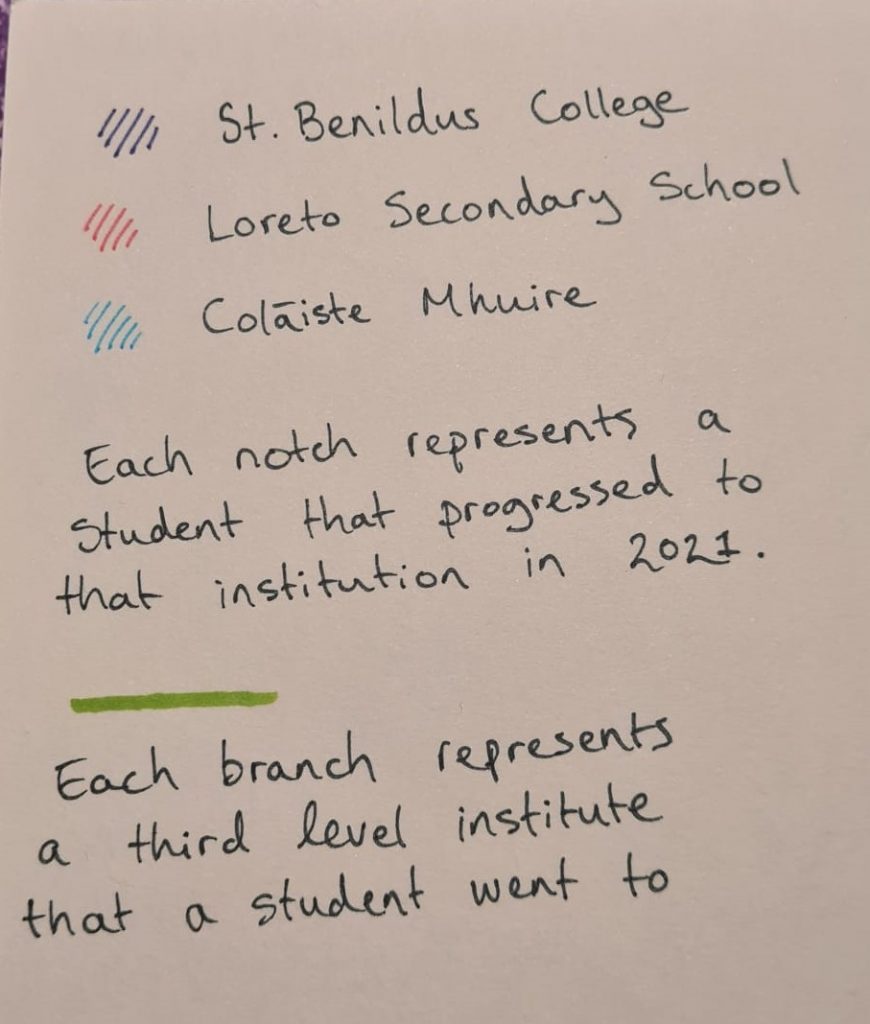 St. Benildus College
Loreto Secondary School
Coláiste Mhuire
Each notch represents a
student that progressed to
that institution in 2021.
Each branch represents
a third level institute
that a student went to